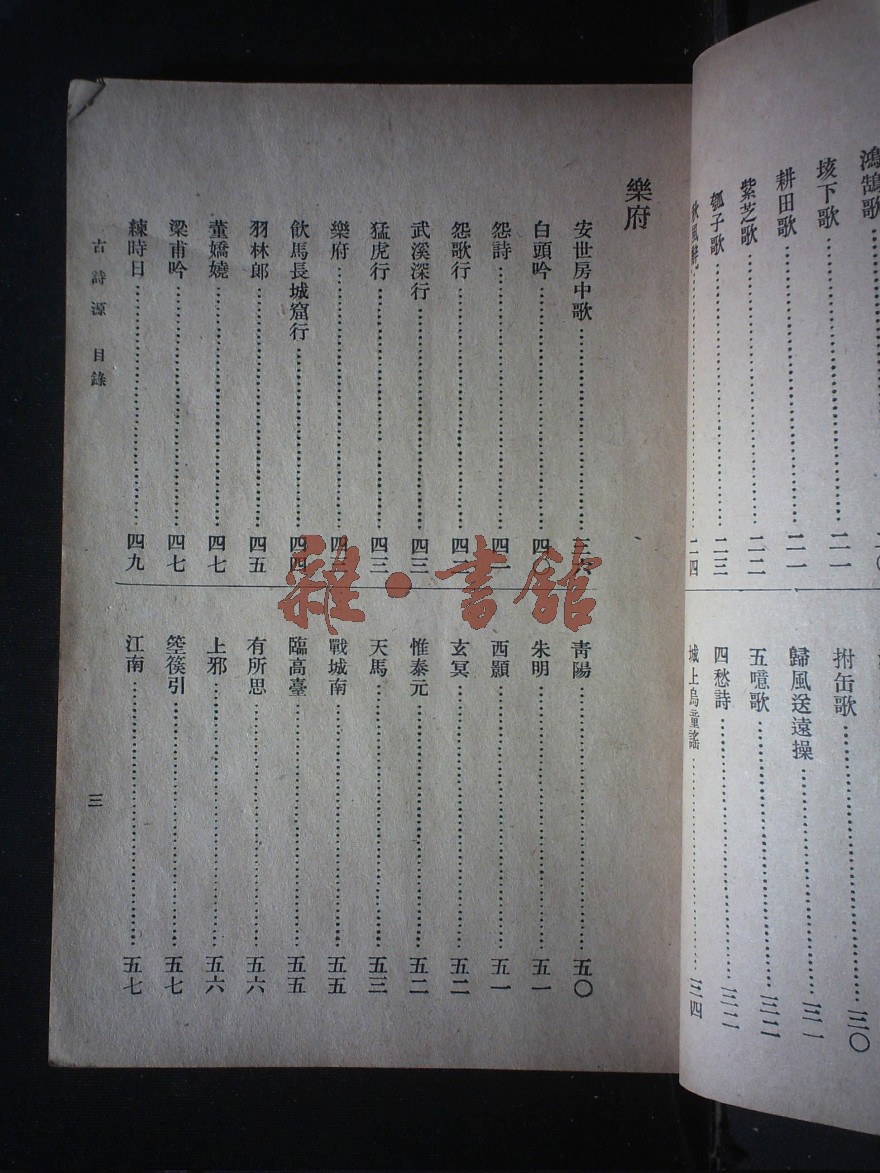 鴻鵠歌……二〇
垓下歌……二一
耕田歌……二一
紫芝歌……二二
瓠子歌……二三
秋風辭……二四
拊缶歌……三〇
歸風送遠操……三一
五噫歌……三二
四愁詩……三二
城上烏童謠……三四
樂府
安世房中歌……三六
白頭吟……四〇
怨詩……四
怨歌行……四二
武溪深行……四三
猛虎行……四三
樂府……四
飲馬長城窟行……四四
羽林郎……四五
董嬌嬈……四七
梁甫吟……四七
練時日……四九
青陽……五〇
朱明……五一
西顥……五一
玄冥……五二
惟泰元……五二
天馬……五三
戰城南……五五
臨高臺……五五
有所思……五六
上邪……五六
箜篌引……五七
江南……五七
古詩源 目錄
三
雜·書館